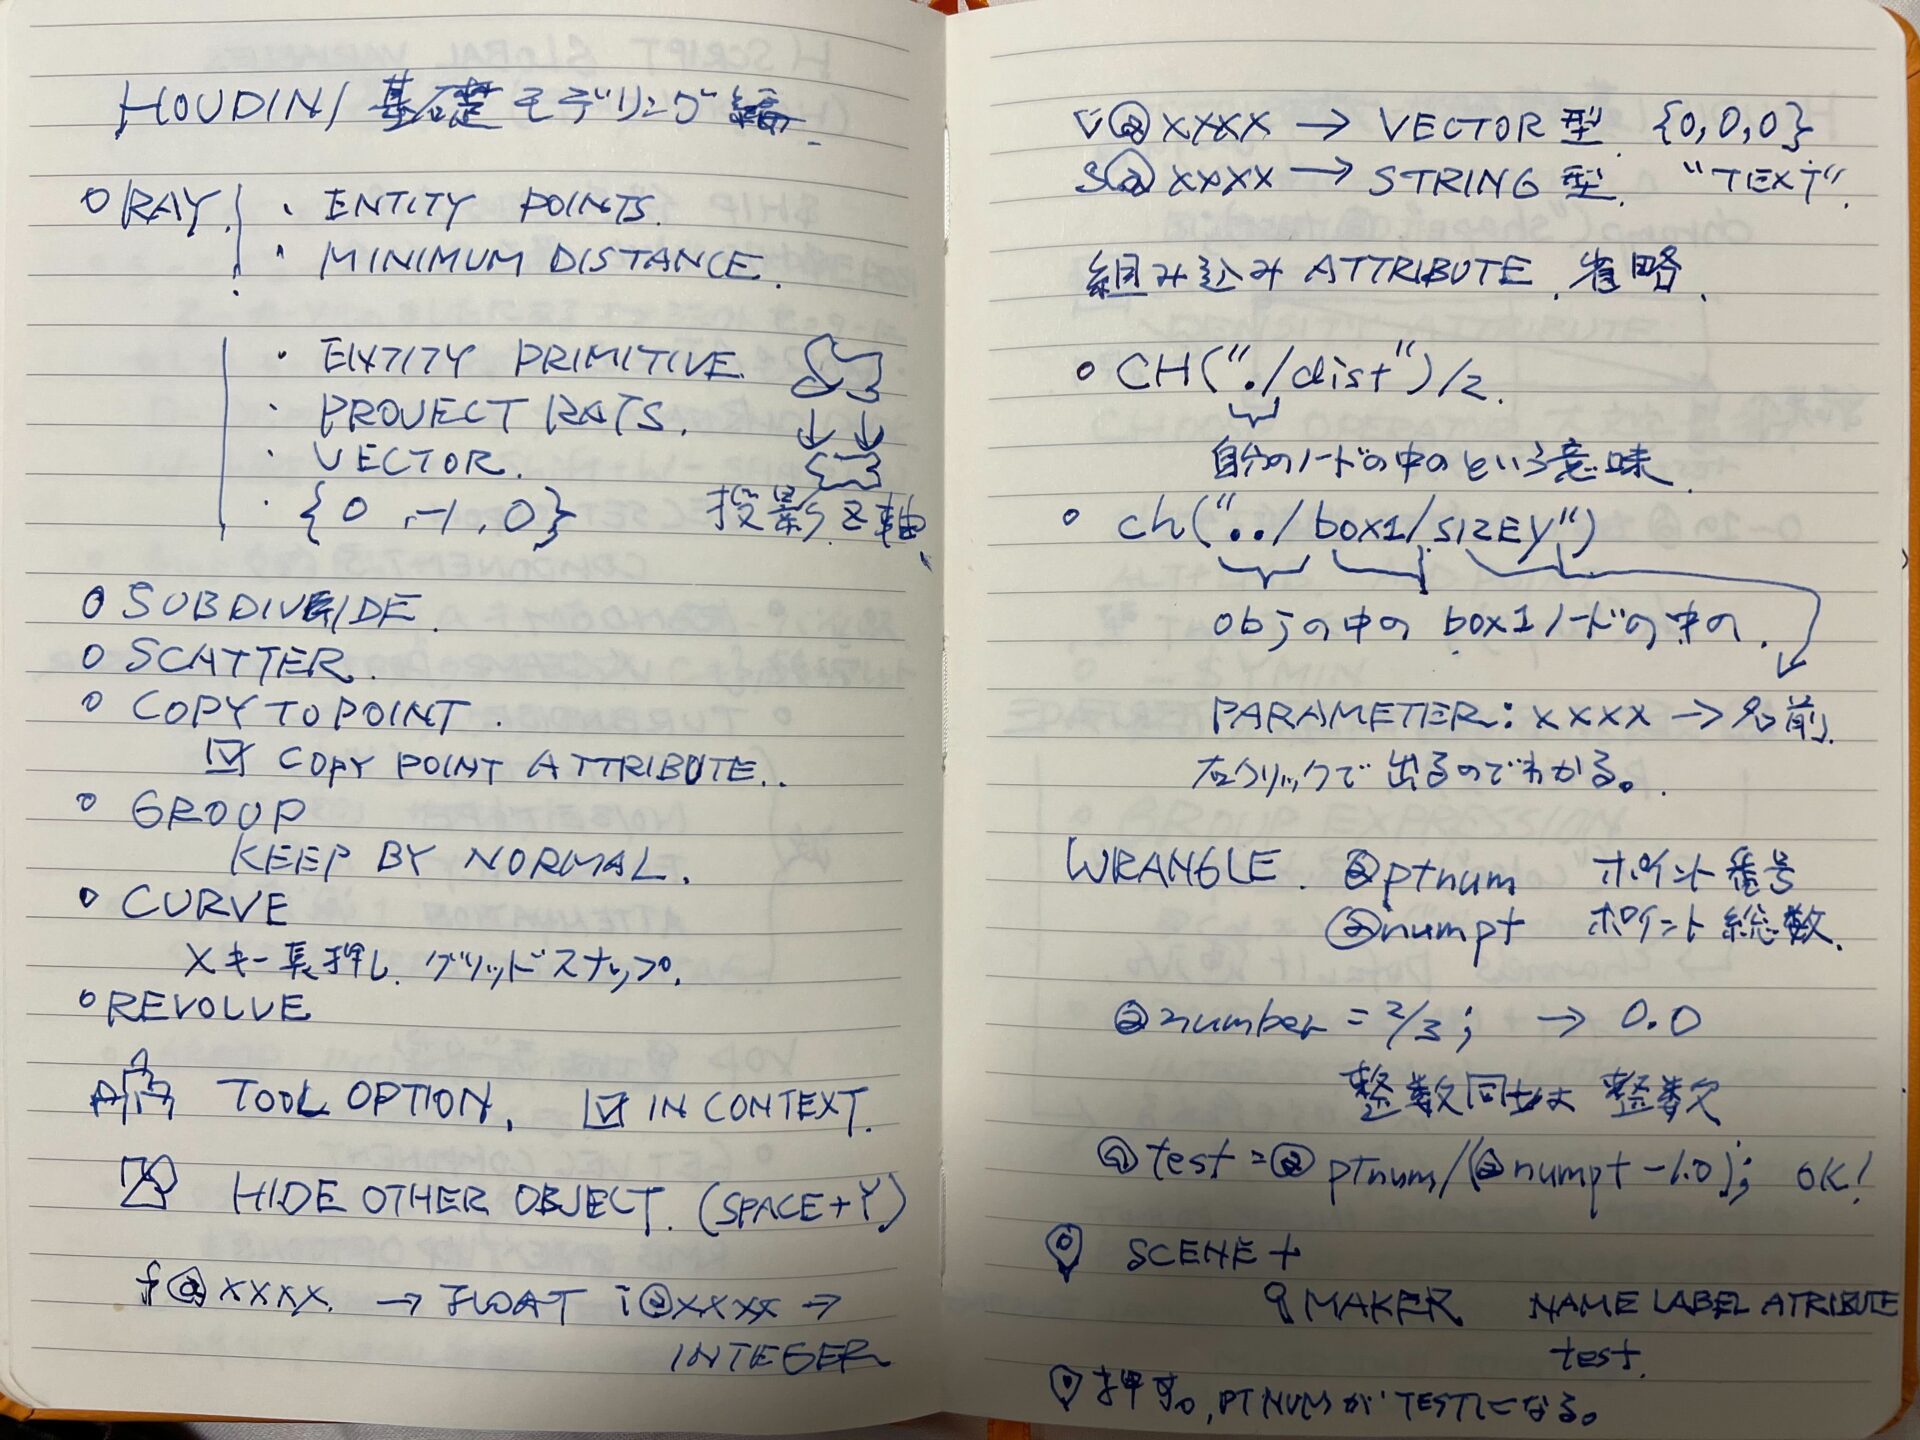 HOUDINI 基礎モデリング編.
○ RAY. ・ ENTITY POINTS.
・ MINIMUM DISTANCE.
・ ENTITY PRIMITIVE.
・ PROJECT RAYS.
・ VECTOR.
・ {0, -1, 0} 投影 Z軸.
○ SUBDIVIDE.
○ SCATTER.
○ COPY TO POINT.
☑ COPY POINT ATTRIBUTE..
○ GROUP
KEEP BY NORMAL.
○ CURVE
Xキー長押し. グリッドスナップ.
○ REVOLVE
TOOL OPTION. ☑ IN CONTEXT.
HIDE OTHER OBJECT. (SPACE+Y)
f@xxxx. → FLOAT i@xxxx →
INTEGER
v@xxxx → VECTOR型. {0,0,0}
s@xxxx → STRING型. "TEXT".
組み込み ATTRIBUTE. 省略.
○ CH("./dist")/2.
自分のノードの中のという意味.
○ ch("../box1/sizey")
objの中の box1ノードの中の.
PARAMETER: xxxx → 名前.
右クリックで出るのでわかる。.
WRANGLE. @ptnum ポイント番号
@numpt ポイント総数.
@number = 2/3; → 0.0
整数同士は 整数
@test = @ptnum/(@numpt-1.0); OK!
SCENE +
MAKER NAME LABEL ATRIBUTE
test.
押す。, PTNUMが TESTになる。